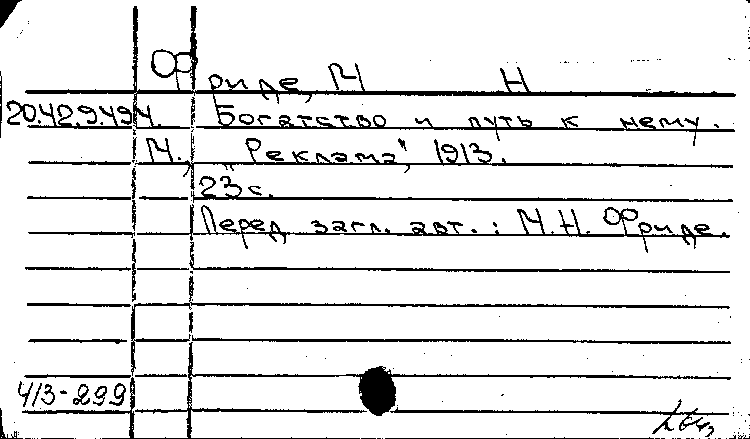 Фриде, М Н
20.42.9.494. Богатство и путь к нему.
М., "Реклама", 1913.
23 с.
Перед загл. авт.: М.Н. Фриде.
413-299